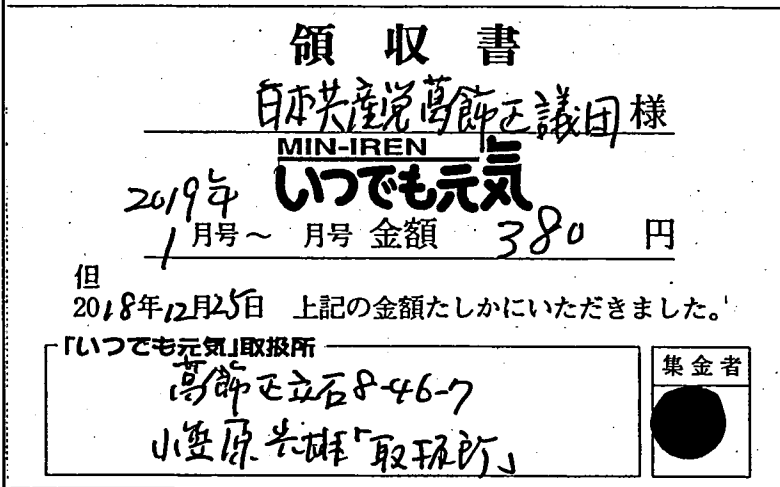 領収書
日本共産党葛飾区議団様
MIN-IREN
いつでも元気
2019年
1月号~ 月号 金額 380 円
但
2018年12月25日 上記の金額たしかにいただきました。
「いつでも元気」取扱所
葛飾区立石8-46-7
小笠原光雄「取扱所」
集金者